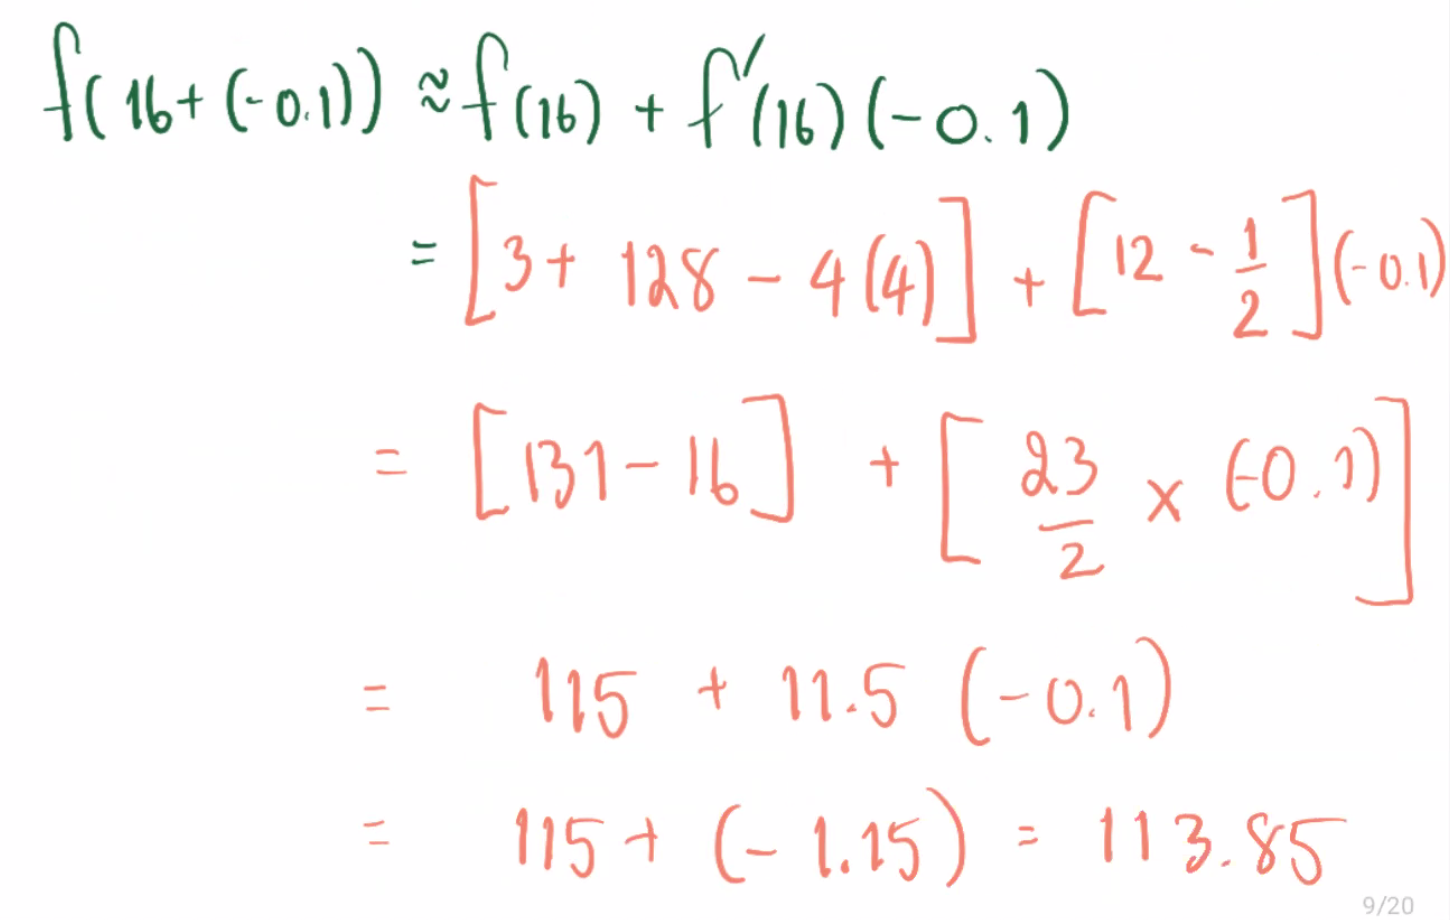 f(16+(-0.1)) ≈ f(16) + f′(16)(-0.1)
= [3 + 128 - 4(4)] + [12 - 1/2](-0.1)
= [131 - 16] + [23/2 × (-0.1)]
= 115 + 11.5 (-0.1)
= 115 + (-1.15) = 113.85
9/20